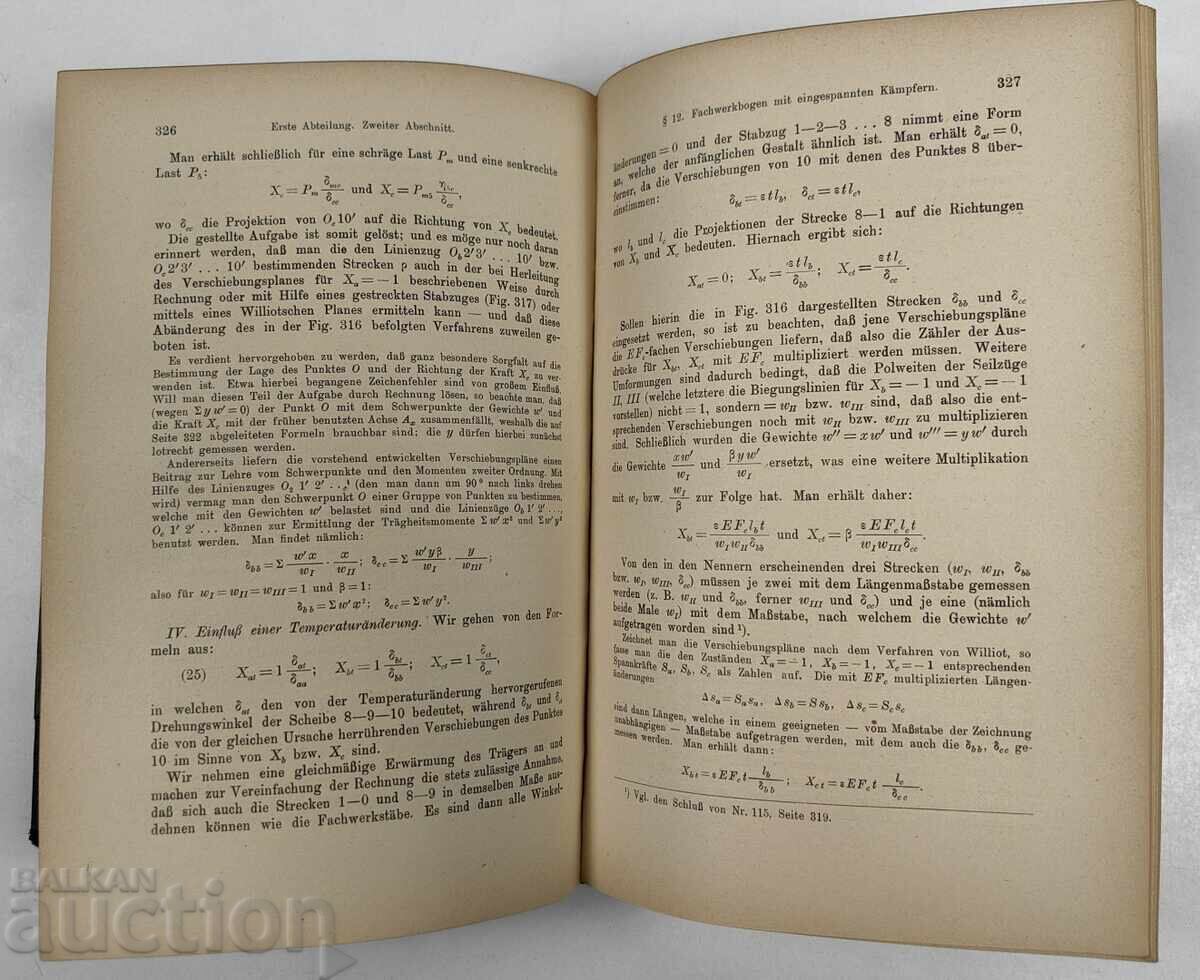 326
Erste Abteilung. Zweiter Abschnitt.
Man erhält schließlich für eine schräge Last P_m und eine senkrechte
Last P_5:
X_c = P_m δ_mc/δ_cc und X_c = P_m5 /δ_cc,
wo δ_cc die Projektion von O_c10′ auf die Richtung von X_c bedeutet.
Die gestellte Aufgabe ist somit gelöst; und es möge nur noch daran
erinnert werden, daß man die Linienzug O_b2′3′ . . . 10′ bzw.
O_c2′3′ . . . 10′ bestimmenden Strecken ρ auch in der bei Herleitung
des Verschiebungsplanes für X_a = − 1 beschriebenen Weise durch
Rechnung oder mit Hilfe eines gestreckten Stabzuges (Fig. 317) oder
mittels eines Williotschen Planes ermitteln kann — und daß diese
Abänderung des in der Fig. 316 befolgten Verfahrens zuweilen ge-
boten ist.
Es verdient hervorgehoben zu werden, daß ganz besondere Sorgfalt auf die
Bestimmung der Lage des Punktes O und der Richtung der Kraft X_c zu ver-
wenden ist. Etwa hierbei begangene Zeichenfehler sind von großem Einfluß.
Will man diesen Teil der Aufgabe durch Rechnung lösen, so beachte man, daß
(wegen Σ y w′ = 0) der Punkt O mit dem Schwerpunkte der Gewichte w′ und
die Kraft X_c mit der früher benutzten Achse A_x zusammenfällt, weshalb die auf
Seite 322 abgeleiteten Formeln brauchbar sind: die y dürfen hierbei zunächst
lotrecht gemessen werden.
Andererseits liefern die vorstehend entwickelten Verschiebungspläne einen
Beitrag zur Lehre vom Schwerpunkte und den Momenten zweiter Ordnung. Mit
Hilfe des Linienzuges O_b 1′ 2′ . . . (den man dann um 90° nach links drehen
wird) vermag man den Schwerpunkt O einer Gruppe von Punkten zu bestimmen,
welche mit den Gewichten w′ belastet sind und die Linienzüge O_b 1′ 2′ . . .,
O_c 1′ 2′ . . . können zur Ermittlung der Trägheitsmomente Σ w′x² und Σ w′y²
benutzt werden. Man findet nämlich:
δ_bb = Σ w′x/w_I · x/w_II; δ_cc = Σ w′yβ/w_I · y/w_III;
also für w_I = w_II = w_III = 1 und β = 1:
δ_bb = Σ w′x²; δ_cc = Σ w′y².
IV. Einfluß einer Temperaturänderung. Wir gehen von den For-
meln aus:
(25) X_at = 1 δ_at/δ_aa; X_bt = 1 δ_bt/δ_bb; X_ct = 1 δ_ct/δ_cc,
in welchen δ_at den von der Temperaturänderung hervorgerufenen
Drehungswinkel der Scheibe 8—9—10 bedeutet, während δ_bt und δ_ct
die von der gleichen Ursache herrührenden Verschiebungen des Punktes
10 im Sinne von X_b bzw. X_c sind.
Wir nehmen eine gleichmäßige Erwärmung des Trägers an und
machen zur Vereinfachung der Rechnung die stets zulässige Annahme,
daß sich auch die Strecken 1—0 und 8—9 in demselben Maße aus-
dehnen können wie die Fachwerkstäbe. Es sind dann alle Winkel-
§ 12. Fachwerkbogen mit eingespannten Kämpfern.
327
änderungen = 0 und der Stabzug 1—2—3 . . . 8 nimmt eine Form
an, welche der anfänglichen Gestalt ähnlich ist. Man erhält δ_at = 0,
ferner, da die Verschiebungen von 10 mit denen des Punktes 8 über-
einstimmen:
δ_bt = ε t l_b, δ_ct = ε t l_c,
wo l_b und l_c die Projektionen der Strecke 8—1 auf die Richtungen
von X_b und X_c bedeuten. Hiernach ergibt sich:
X_at = 0; X_bt = ε t l_b/δ_bb; X_ct = ε t l_c/δ_cc.
Sollen hierin die in Fig. 316 dargestellten Strecken δ_bb und δ_cc
eingesetzt werden, so ist zu beachten, daß jene Verschiebungspläne
die EF_c-fachen Verschiebungen liefern, daß also die Zähler der Aus-
drücke für X_bt, X_ct mit EF_c multipliziert werden müssen. Weitere
Umformungen sind dadurch bedingt, daß die Polweiten der Seilzüge
II, III (welche letztere die Biegungslinien für X_b = − 1 und X_c = − 1
vorstellen) nicht = 1, sondern = w_II bzw. w_III sind, daß also die ent-
sprechenden Verschiebungen noch mit w_II bzw. w_III zu multiplizieren
sind. Schließlich wurden die Gewichte w″ = xw′ und w‴ = yw′ durch
die Gewichte xw′/w_I und βyw′/w_I ersetzt, was eine weitere Multiplikation
mit w_I bzw. w_I/β zur Folge hat. Man erhält daher:
X_bt = ε EF_c l_b t/w_I w_II δ_bb und X_ct = β ε EF_c l_c t/w_I w_III δ_cc.
Von den in den Nennern erscheinenden drei Strecken (w_I, w_II, δ_bb
bzw. w_I, w_III, δ_cc) müssen je zwei mit dem Längenmaßstabe gemessen
werden (z. B. w_II und δ_bb, ferner w_III und δ_cc) und je eine (nämlich
beide Male w_I) mit dem Maßstabe, nach welchem die Gewichte w′
aufgetragen worden sind ¹).
Zeichnet man die Verschiebungspläne nach dem Verfahren von Williot, so
fasse man die den Zuständen X_a = − 1, X_b = − 1, X_c = − 1 entsprechenden
Spannkräfte S_a, S_b, S_c als Zahlen auf. Die mit EF_c multiplizierten Längen-
änderungen
Δ s_a = S_a s_a, Δ s_b = S s_b, Δ s_c = S_c s_c
sind dann Längen, welche in einem geeigneten — vom Maßstabe der Zeichnung
unabhängigen — Maßstabe aufgetragen werden, mit dem auch die δ_bb, δ_cc ge-
messen werden. Man erhält dann:
X_bt = ε EF_c t l_b/δ_bb; X_ct = ε EF_c t l_c/δ_cc.
¹) Vgl. den Schluß von Nr. 115, Seite 319.
BALKAN
auction